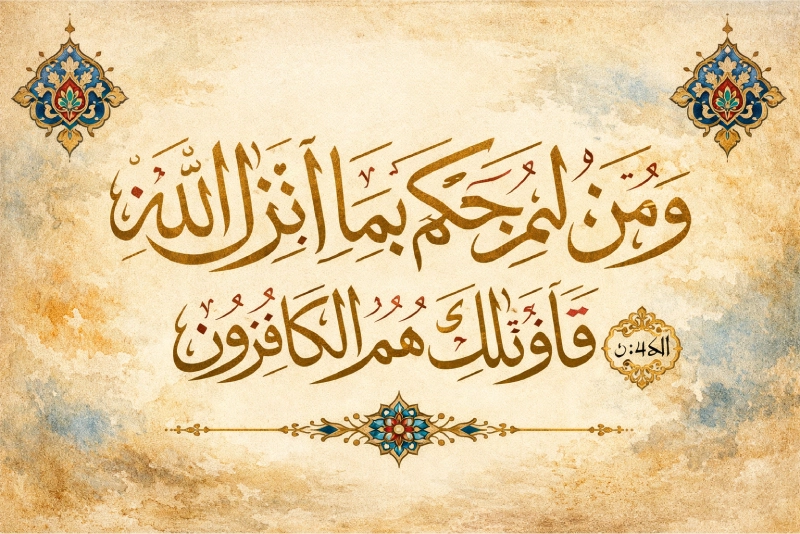 وَمُنَ لَيمُ حَكَم بِمَا أَنزَلَ اللَّهُ
قَآوَٰتلِكَ هُمُ الكَافِرُون